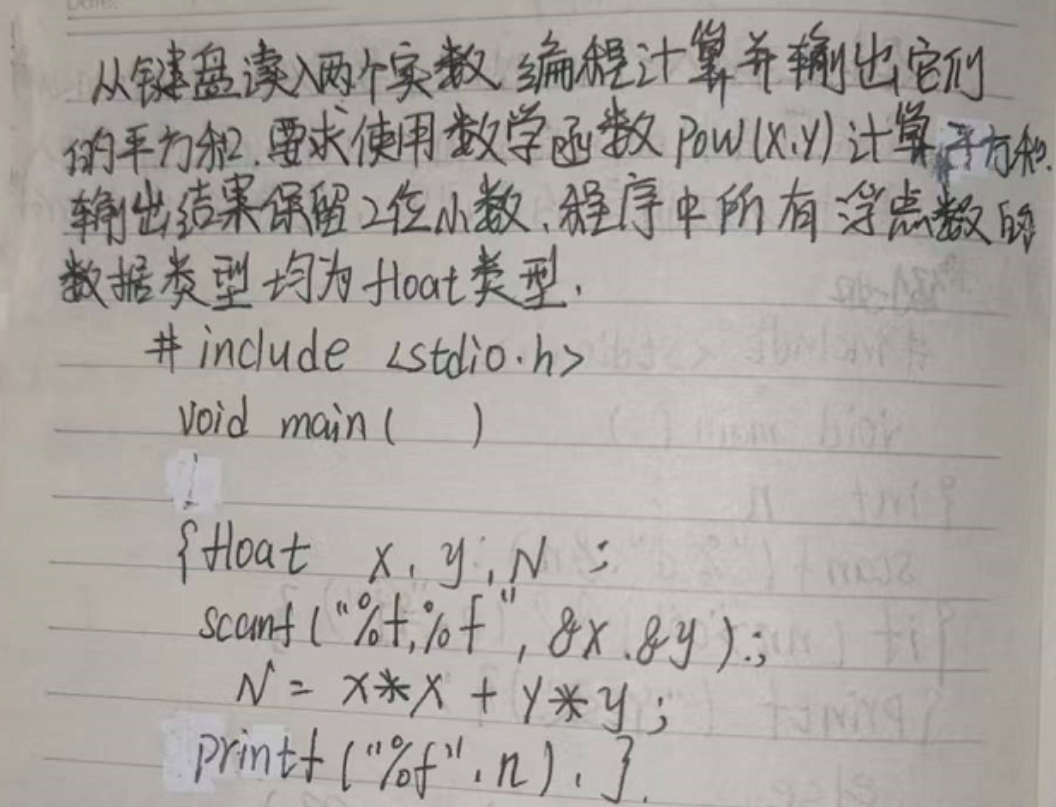 从键盘读入两个实数,编程计算并输出它们
的平方和.要求使用数学函数pow(x.y)计算平方和.
输出结果保留2位小数.程序中所有浮点数的
数据类型均为float类型.
# include <stdio.h>
void main( )
{float x, y, N ;
scanf("%f,%f", &x.&y).;
N = x*x + y*y;
printf("%f".n).}.